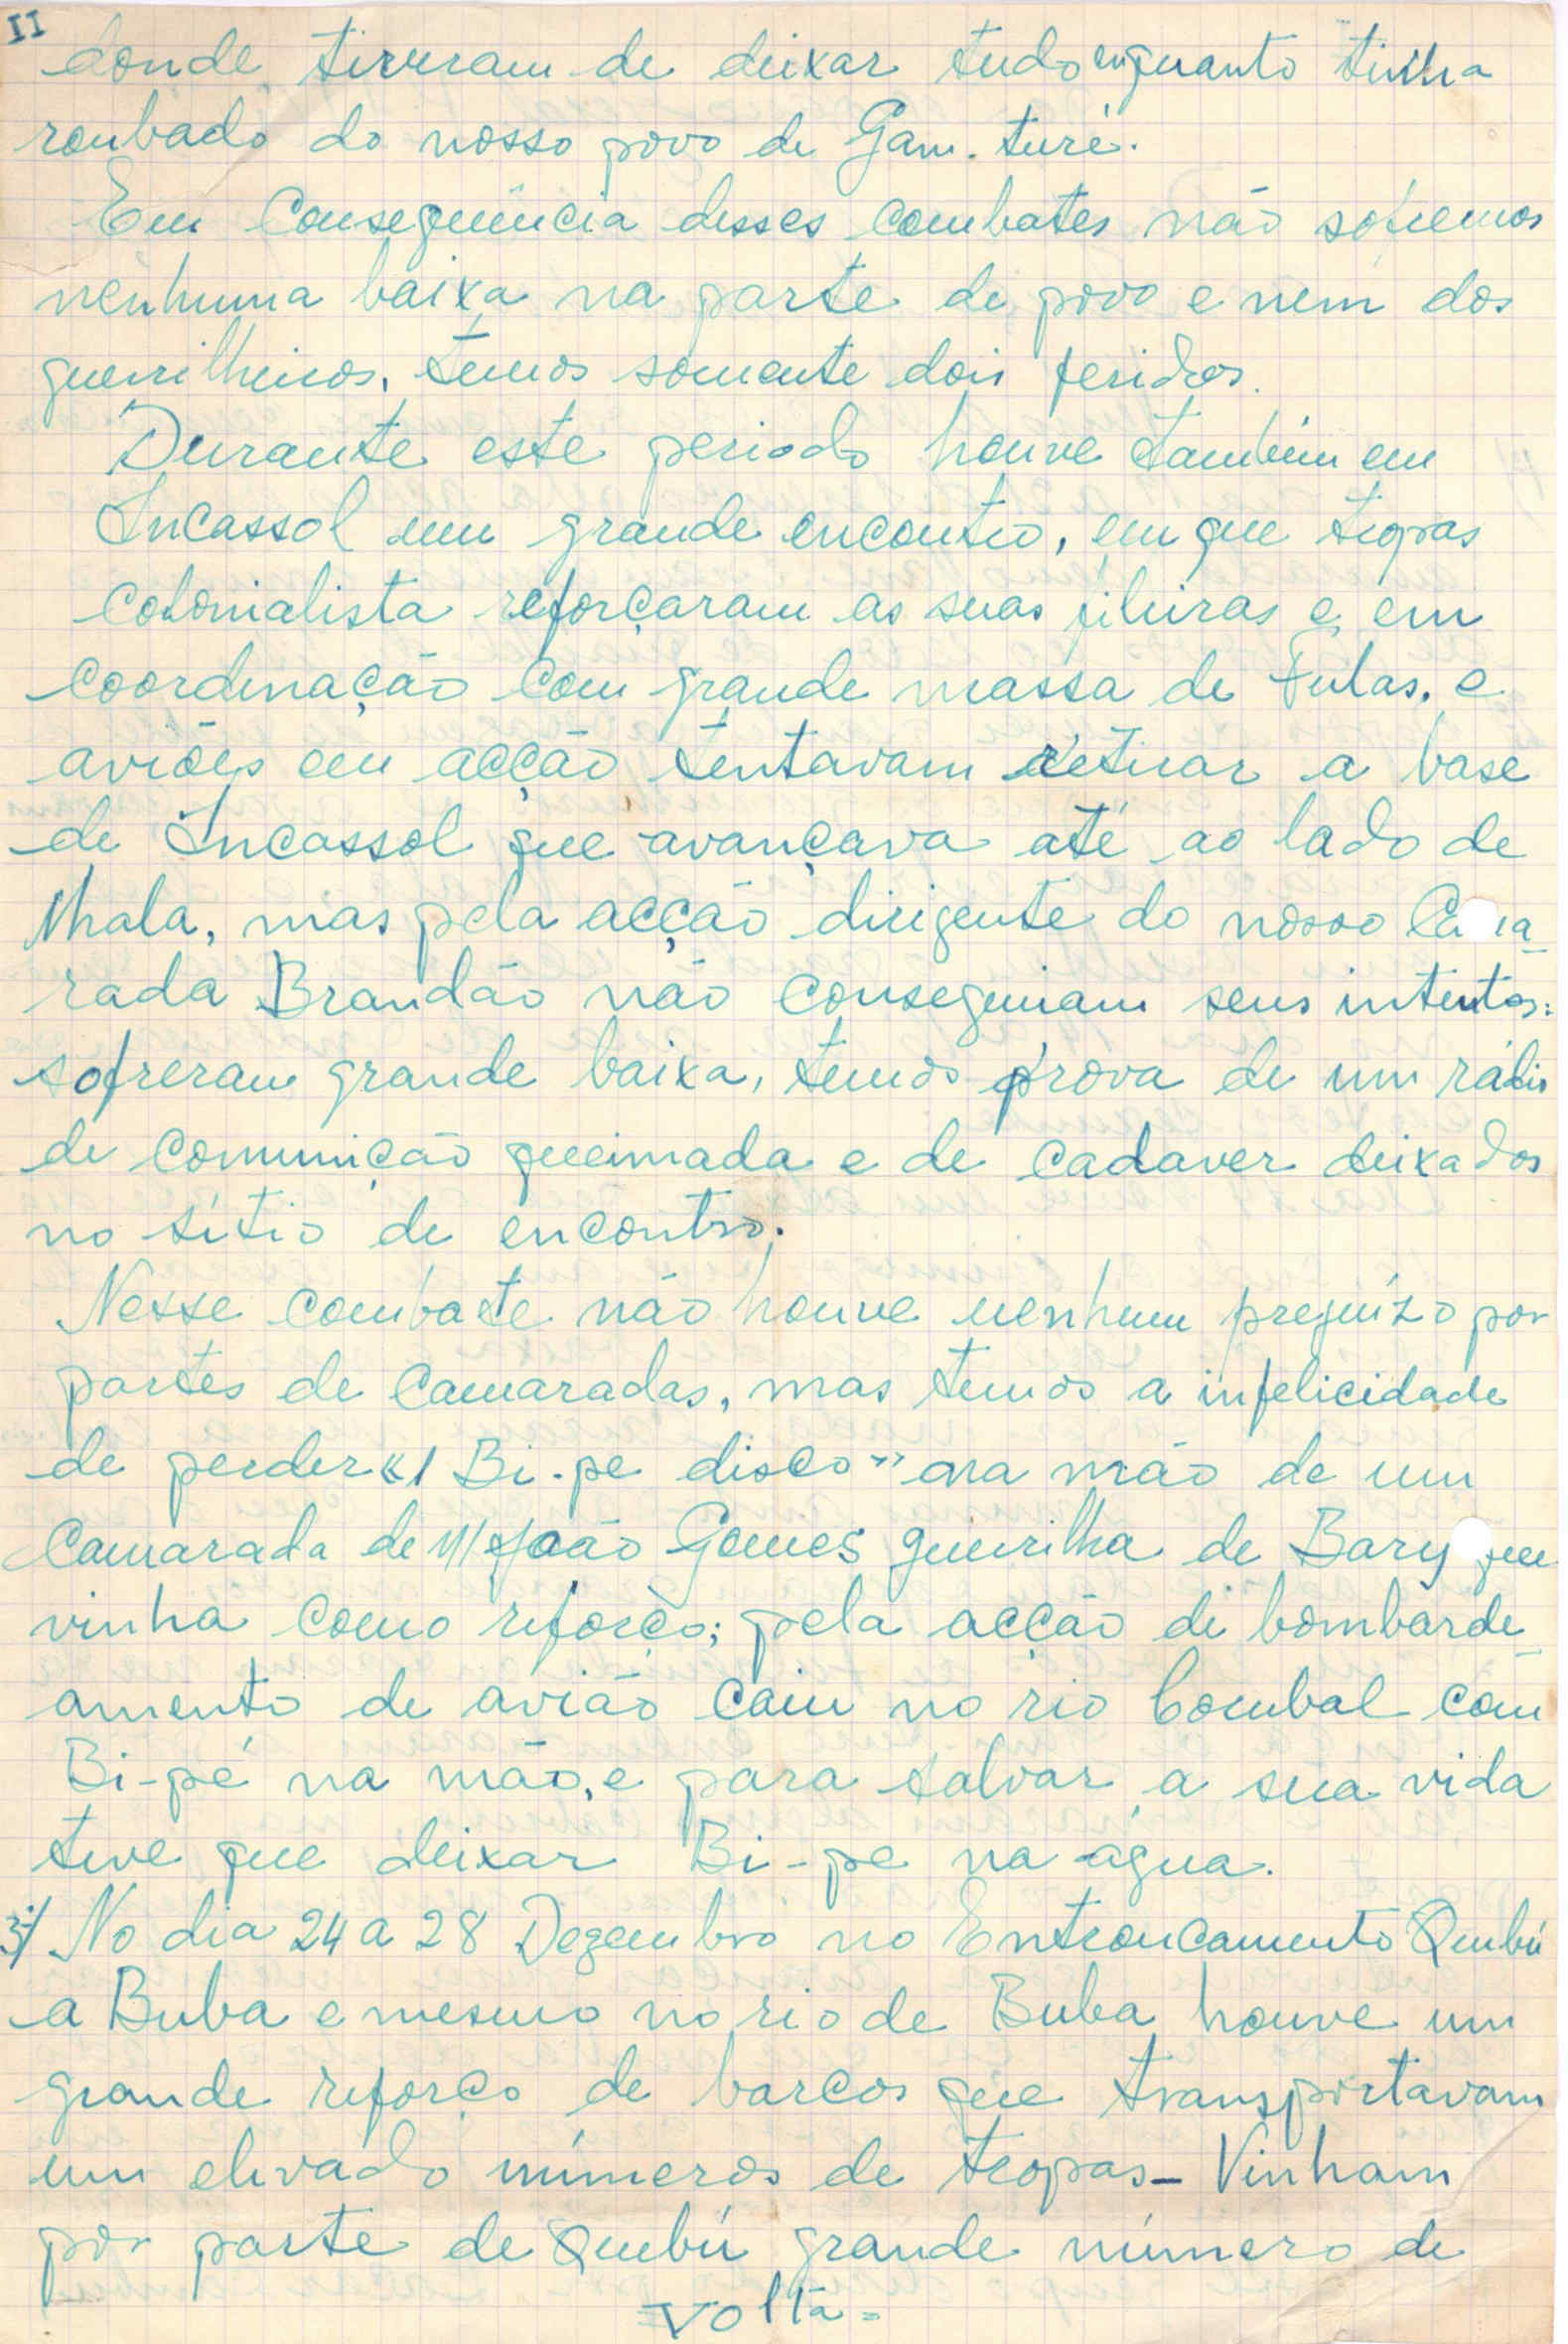 II
donde, tiveram de deixar tudo enquanto tinha
roubado do nosso povo de Gam. turé.
Em Consequência desses combates não sofremos
nenhuma baixa na parte de povo e nem dos
guerrilheiros, temos somente dois feridos.
Durante este periodo houve também em
Incassol um grande encontro, em que tropas
colonialista reforçaram as suas fileiras e, em
coordenação com grande massa de Fulas, e
aviões em acção tentavam retirar a base
de Incassol que avançava até ao lado de
Nhala, mas pela acção dirigente do nosso Ca ma-
rada Brandão não conseguiam seus intentos:
sofreram grande baixa, temos prova de um rádio
de comunição queimada e de cadaver deixados
no sítio de encontro.
Nesse combate não houve nenhum prequízo por
partes de Camaradas, mas temos a infelicidade
de perder «1 Bi-pe disco» na mão de um
Camarada de João Gomes guerilha de Bary que
vinha como reforço; pela acção de bombarde
amento de avião caiu no rio Combal com
Bi-pé na mão, e para salvar a sua vida
teve que deixar Bi-pe na água.
3º/ No dia 24 a 28 Dezembro no Entroncamento Quebú
a Buba e mesmo no rio de Buba houve um
grande reforço de barcos que transportavam
um elevado números de tropas - Vinham
por parte de Quebú grande número de
= volta =